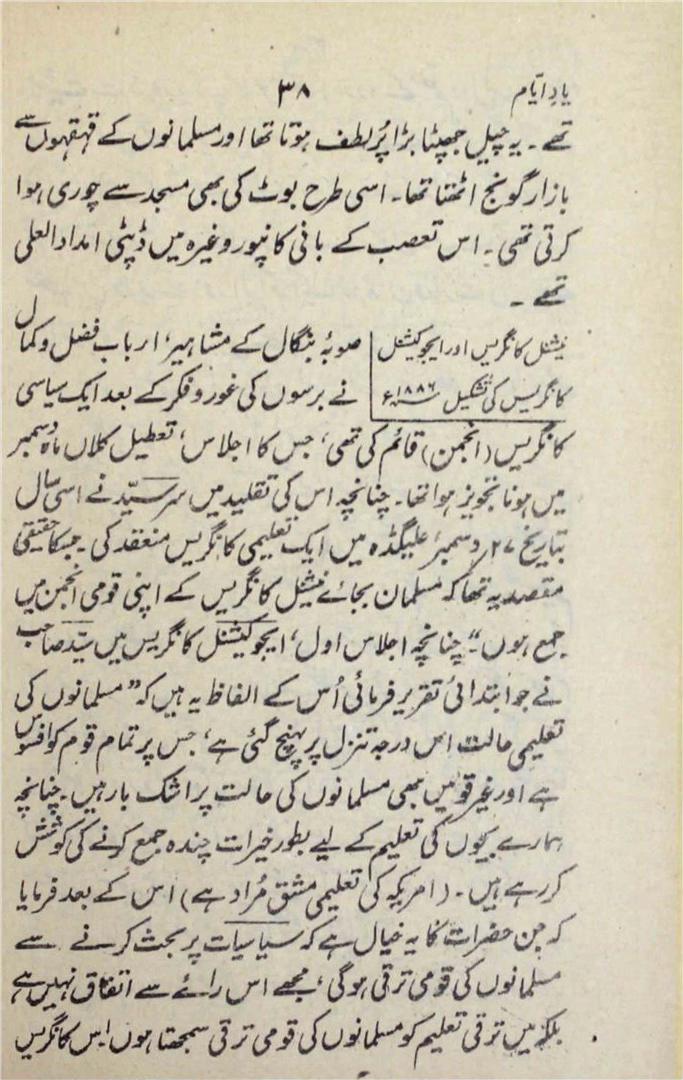 یادِ ایّام
۳۸
تھے۔ یہ چیل جھپٹا بڑا پُر لطف ہوتا تھا اور مسلمانوں کے قہقہوں سے
بازار گونج اٹھتا تھا۔ اسی طرح بوٹ کی بھی مسجد سے چوری ہوا
کرتی تھی۔ اس تعصب کے بانی کانپور وغیرہ میں ڈپٹی امداد العلی
تھے۔
نیشنل کانگریس اور ایجوکیشنل
کانگریس کی تشکیل ۱۸۸۶ء
صوبۂ بنگال کے مشاہیر، ارباب فضل و کمال
نے برسوں کی غور و فکر کے بعد ایک سیاسی
کانگریس (انجمن) قائم کی تھی، جس کا اجلاس، تعطیل کلاں ماہ دسمبر
میں ہونا تجویز ہوا تھا۔ چنانچہ اس کی تقلید میں سرسیّد نے اسی سال
بتاریخ ۲۷ دسمبر، علیگڈھ میں ایک تعلیمی کانگریس منعقد کی۔ جسکا حقیقی
مقصد یہ تھا کہ مسلمان بجائے نیشنل کانگریس کے اپنی قومی انجمن میں
جمع ہوں۔" چنانچہ اجلاس اول، ایجوکیشنل کانگریس میں سیّد صاحب
نے جو ابتدائی تقریر فرمائی اُس کے الفاظ یہ ہیں کہ "مسلمانوں کی
تعلیمی حالت اس درجہ تنزل پر پہنچ گئی ہے، جس پر تمام قوم کو افسوس
ہے اور غیر قومیں بھی مسلمانوں کی حالت پر اشک بار ہیں۔ چنانچہ
ہمارے بچوں کی تعلیم کے لیے بطور خیرات چندہ جمع کرنے کی کوشش
کر رہے ہیں۔ (امریکہ کی تعلیمی مشق مُراد ہے) اس کے بعد فرمایا
کہ جن حضرات کا یہ خیال ہے کہ سیاسیات پر بحث کرنے سے
مسلمانوں کی قومی ترقی ہوگی، مجھے اس رائے سے اتفاق نہیں ہے
بلکہ میں ترقی تعلیم کو مسلمانوں کی قومی ترقی سمجھتا ہوں اس کانگریس